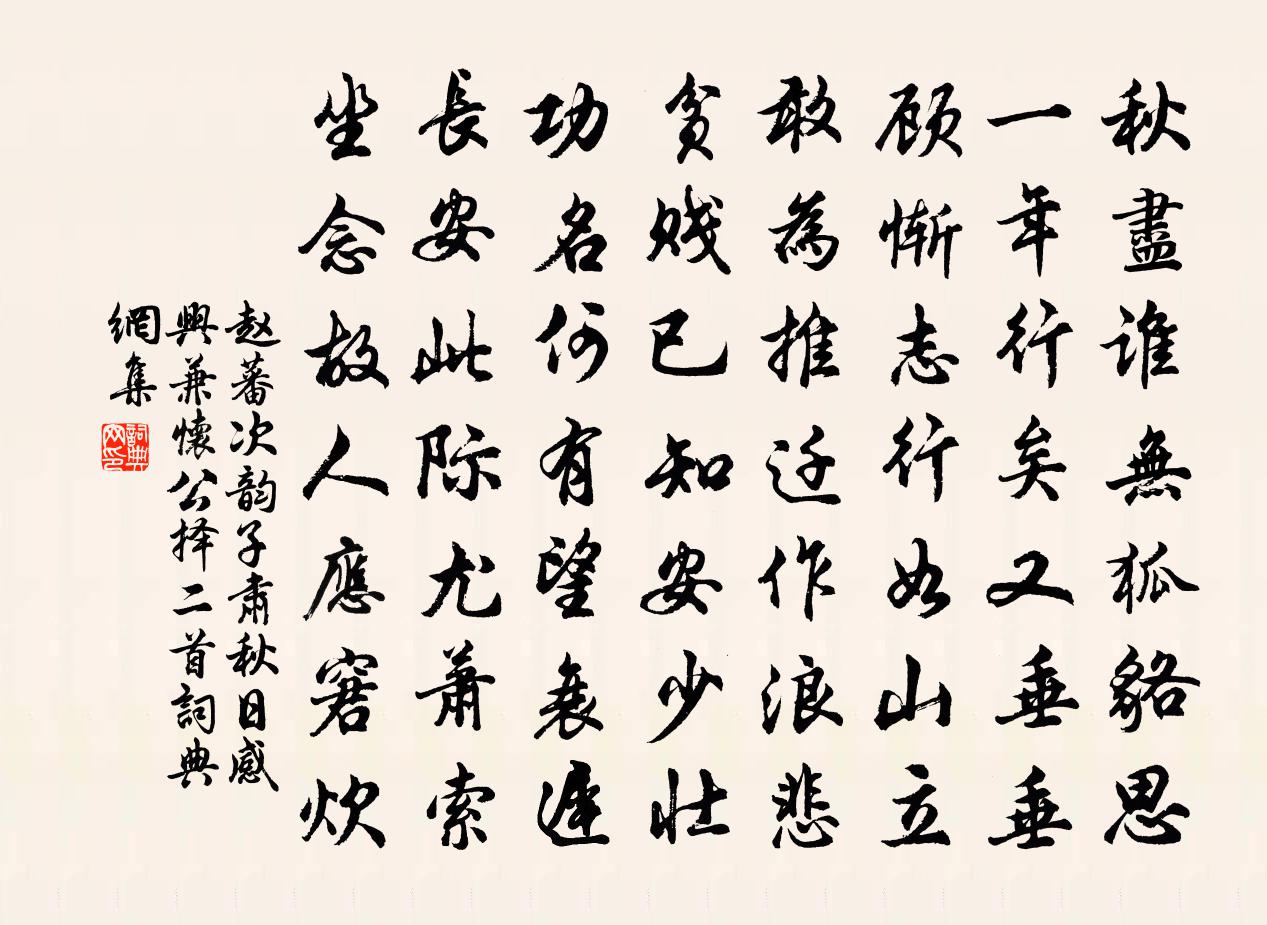 秋盡誰無狐貉思
一年行矣又垂垂
顾惭志行如山立
敢為推迁作浪悲
貧贱已知安少壮
功名何有望衰遲
長安此际尤萧索
坐念故人應窘炊
赵蕃次韵子肅秋日感
興兼懷公择二首詞典
網集
詞典
网印